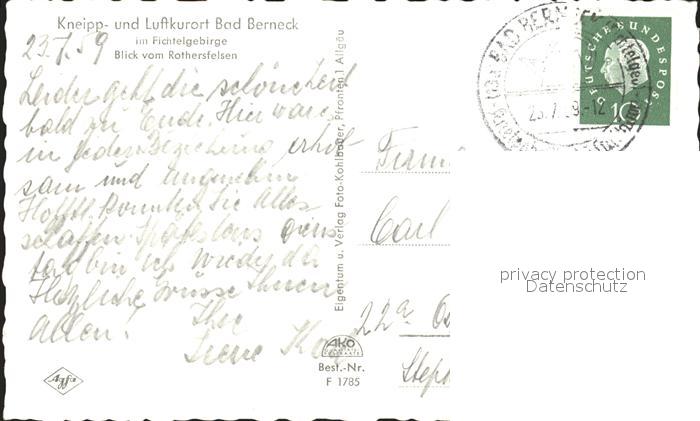 Kneipp- und Luftkurort Bad Berneck
im Fichtelgebirge
Blick vom Rothersfelsen
23.7.59
Leider geht die schöne Zeit
bald zu Ende. Hier war es
in jeder Beziehung erhol-
sam und angenehm
Hofftl. konnten Sie Alles
schaffen. Spätestens
bin ich wieder da
Herzliche Grüsse Ihnen
Allen!
Ihre
Irene
Eigentum u. Verlag Foto-Kohlbauer, Pfronten 1 Allgäu
AKO
Best.-Nr.
F 1785
Agfa
BAD BERNECK
23.7.59.-12
DEUTSCHE BUNDESPOST
10
Firma
Carl
22a
Steph
privacy protection
Datenschutz